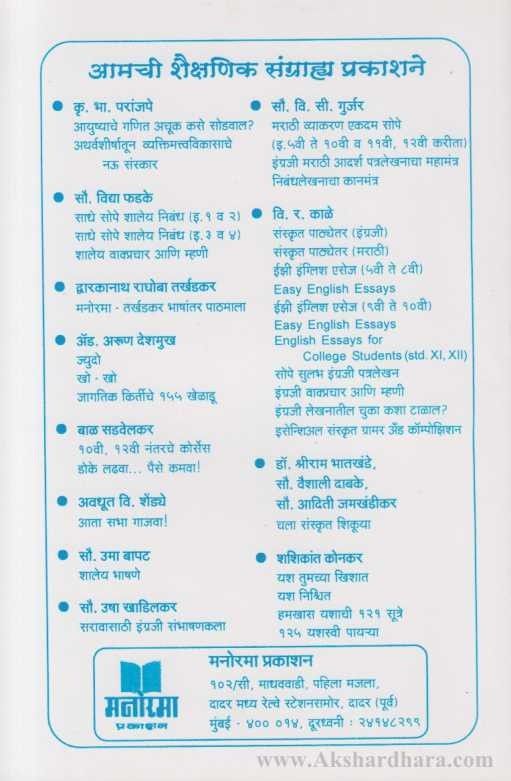 आमची शैक्षणिक संग्राह्य प्रकाशने
● कृ. भा. परांजपे
आयुष्याचे गणित अचूक कसे सोडवाल?
अथर्वशीर्षातून व्यक्तिमत्त्वविकासाचे
नऊ संस्कार
● सौ. विद्या फडके
साधे सोपे शालेय निबंध (इ.१ व २)
साधे सोपे शालेय निबंध (इ.३ व ४)
शालेय वाक्प्रचार आणि म्हणी
● द्वारकानाथ राघोबा तर्खडकर
मनोरमा - तर्खडकर भाषांतर पाठमाला
● ॲड. अरूण देशमुख
ज्युदो
खो - खो
जागतिक किर्तीचे १५५ खेळाडू
● बाळ सडवेलकर
१०वी, १२वी नंतरचे कोर्सेस
डोके लढवा... पैसे कमवा!
● अवधूत वि. शेंड्ये
आता सभा गाजवा!
● सौ. उमा बापट
शालेय भाषणे
● सौ. उषा खाडिलकर
सरावासाठी इंग्रजी संभाषणकला
● सौ. वि. सी. गुर्जर
मराठी व्याकरण एकदम सोपे
(इ.५वी ते १०वी व ११वी, १२वी करीता)
इंग्रजी मराठी आदर्श पत्रलेखनाचा महामंत्र
निबंधलेखनाचा कानमंत्र
● वि. र. काळे
संस्कृत पाठ्येतर (इंग्रजी)
संस्कृत पाठ्येतर (मराठी)
ईझी इंग्लिश एसेज (५वी ते ८वी)
Easy English Essays
ईझी इंग्लिश एसेज (९वी ते १०वी)
Easy English Essays
English Essays for
College Students (std. XI, XII)
सोपे सुलभ इंग्रजी पत्रलेखन
इंग्रजी वाक्प्रचार आणि म्हणी
इंग्रजी लेखनातील चुका कशा टाळाल?
इसेन्शिअल संस्कृत ग्रामर अँड कॉम्पोझिशन
● डॉ. श्रीराम भातखंडे,
सौ. वैशाली दाबके,
सौ. आदिती जमखंडीकर
चला संस्कृत शिकूया
● शशिकांत कोनकर
यश तुमच्या खिशात
यश निश्चित
हमखास यशाची १२१ सूत्रे
१२५ यशस्वी पायऱ्या
मनोरमा
प्रकाशन
मनोरमा प्रकाशन
१०२/सी, माधववाडी, पहिला मजला,
दादर मध्य रेल्वे स्टेशनसामोर, दादर (पूर्व)
मुंबई - ४०० ०१४, दूरध्वनी : २४१४८२९९
www.Akshardhara.com